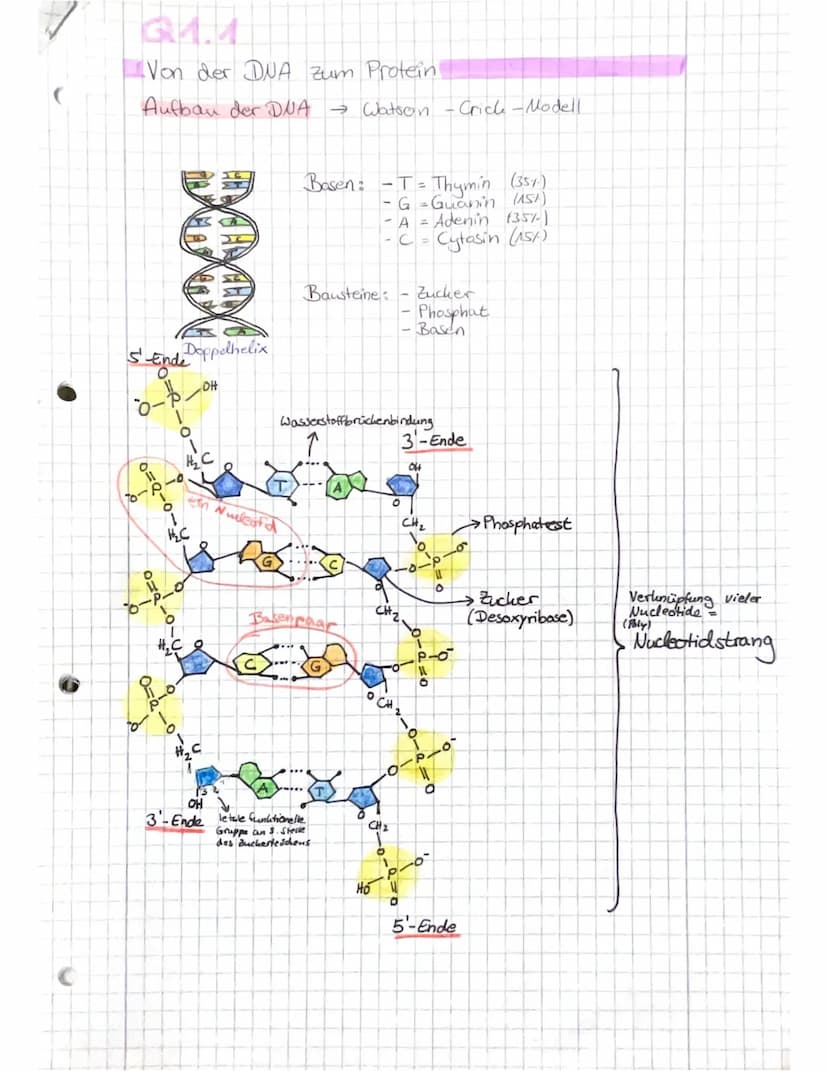 Q1.1
Von der DNA zum Protein
Aufbau der DNA → Watson - Crick - Modell
Basen: - T = Thymin (35%)
- G = Guanin (15%)
- A = Adenin (35%)
- C = Cytosin (15%)
Bausteine: - Zucker
- Phosphat
- Basen
Doppelhelix
5'-Ende
O
OH
-O-P
O
H₂C
O
Wasserstoffbrückenbindung
3'-Ende
OH
T
A
O
O
-O-P-O
O
ein Nucleotid
H₂C
O
G
C
CH₂
O
O-P-O-
O
Phosphatrest
O
O
-O-P-O
O
Zucker
(Desoxyribase)
CH₂
O
Basenpaar
H₂C
O
C
G
O-P-O-
O
Verknüpfung vieler
Nucleotide =
(Poly)
Nucleotidstrang
O
O
-O-P
O
CH₂
O
H₂C
O
O-
P
O
O
A
T
3'
OH
O
3'-Ende
letzte funktionelle
Gruppe an 3. Stelle
des Zuckerteilchens
CH₂
O
O-
P
HO
O
5'-Ende